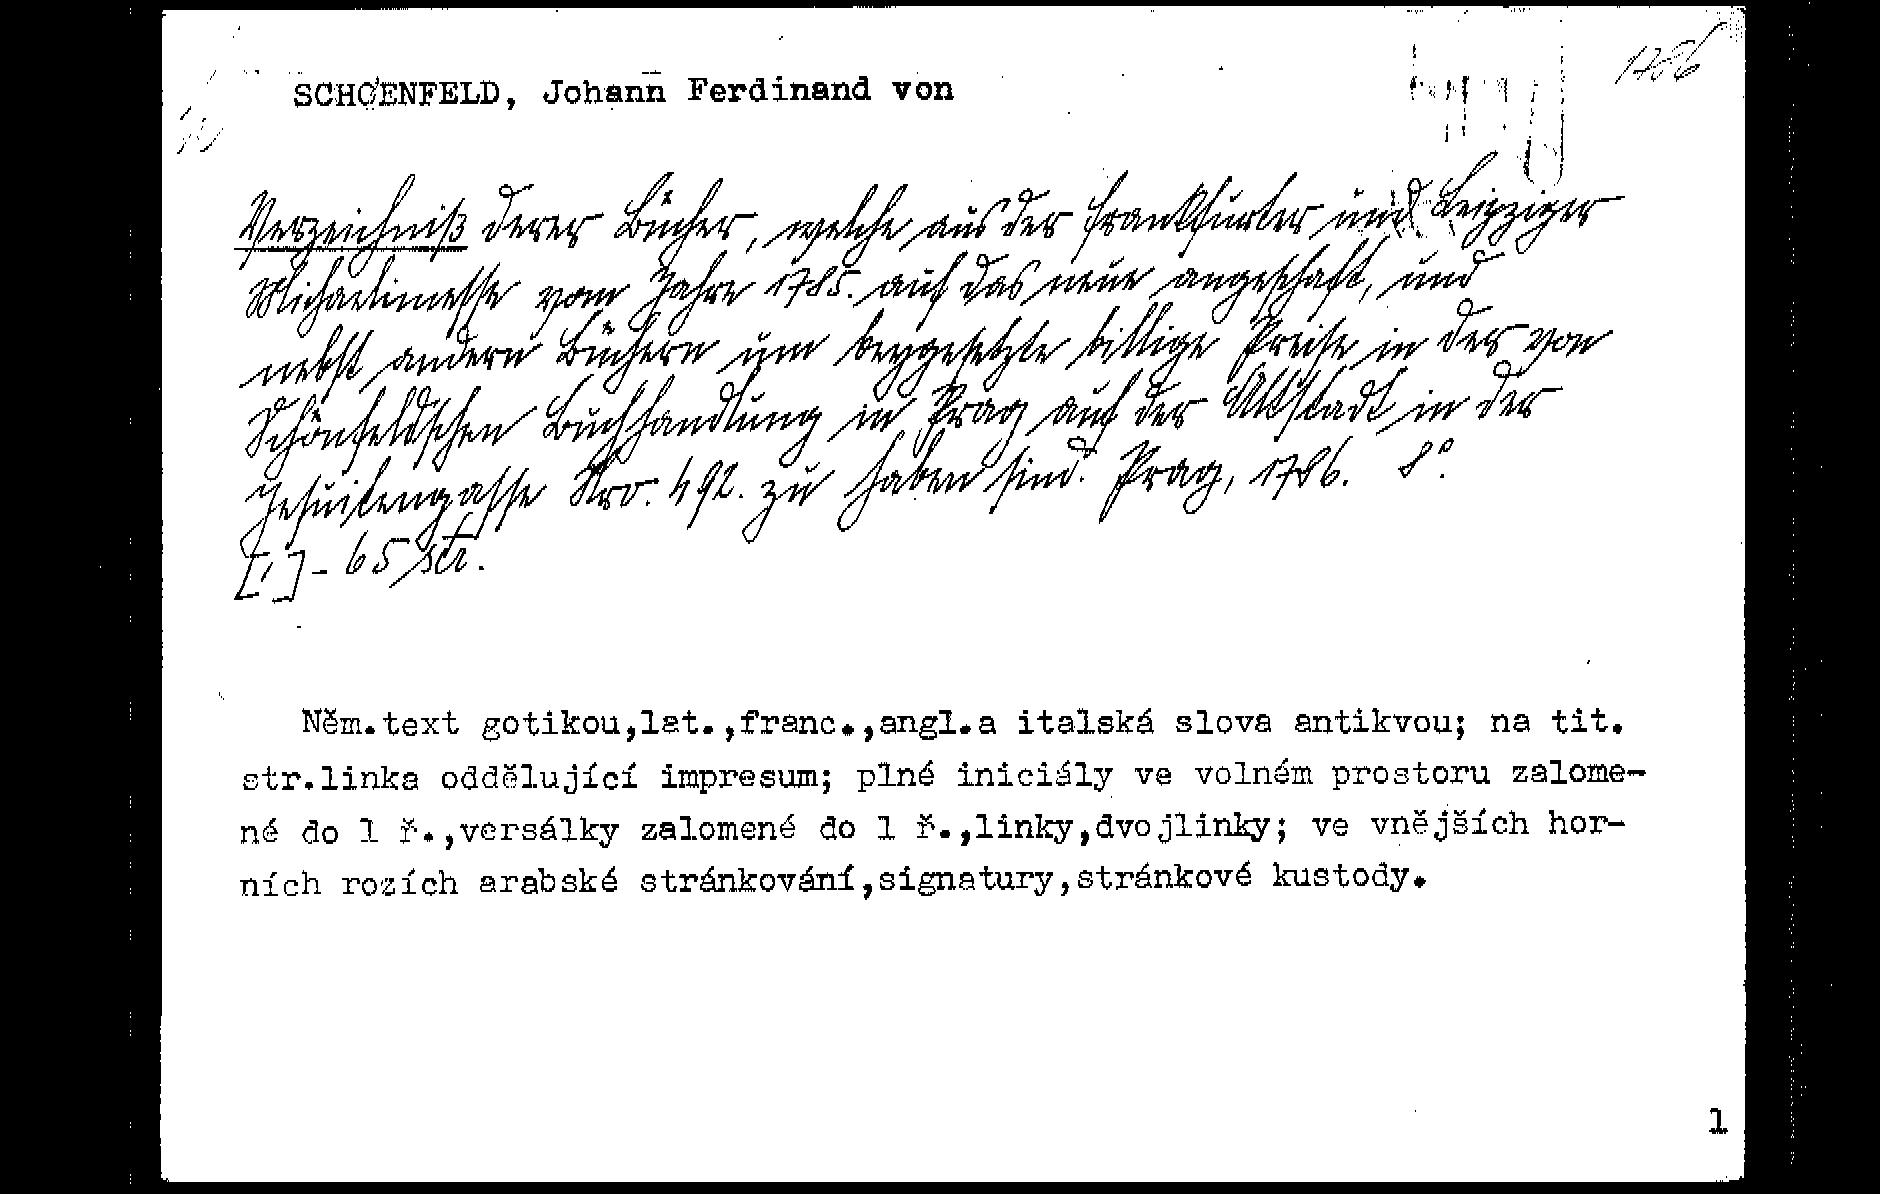 1786
SCHOENFELD, Johann Ferdinand von
Verzeichniß derer Bücher, welche aus der Frankfurter und Leipziger
Michaelimesse vom Jahre 1785. auf das neue angeschaft, und
nebst andern Büchern um beygesetzte billige Preise in der von
Schönfeldschen Buchhandlung in Prag auf der Altstadt in der
Jesuitengasse Nro. 492. zu haben sind. Prag, 1786. 8°.
[1] - 65 str.
Něm.text gotikou,lat.,franc.,angl.a italská slova antikvou; na tit.
str.linka oddělující impresum; plné iniciály ve volném prostoru zalome-
né do 1 ř.,versálky zalomené do 1 ř.,linky,dvojlinky; ve vnějších hor-
ních rozích arabské stránkování,signatury,stránkové kustody.
1